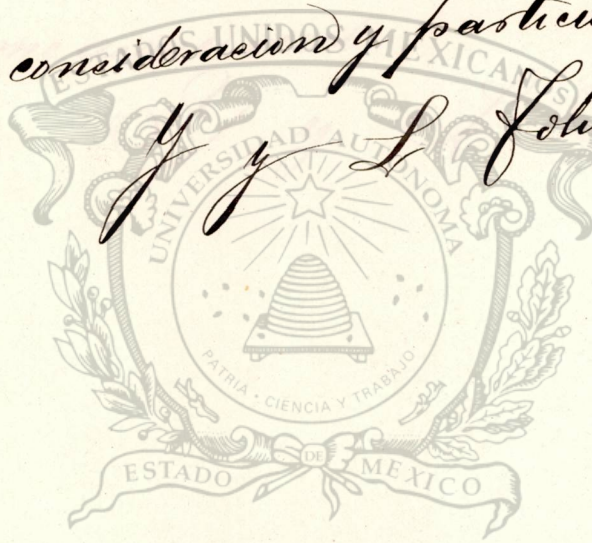 consideracion y particu
Y y L Tolu
ESTADOS UNIDOS MEXICANOS
UNIVERSIDAD AUTÓNOMA
PATRIA · CIENCIA Y TRABAJO·
ESTADO DE MÉXICO